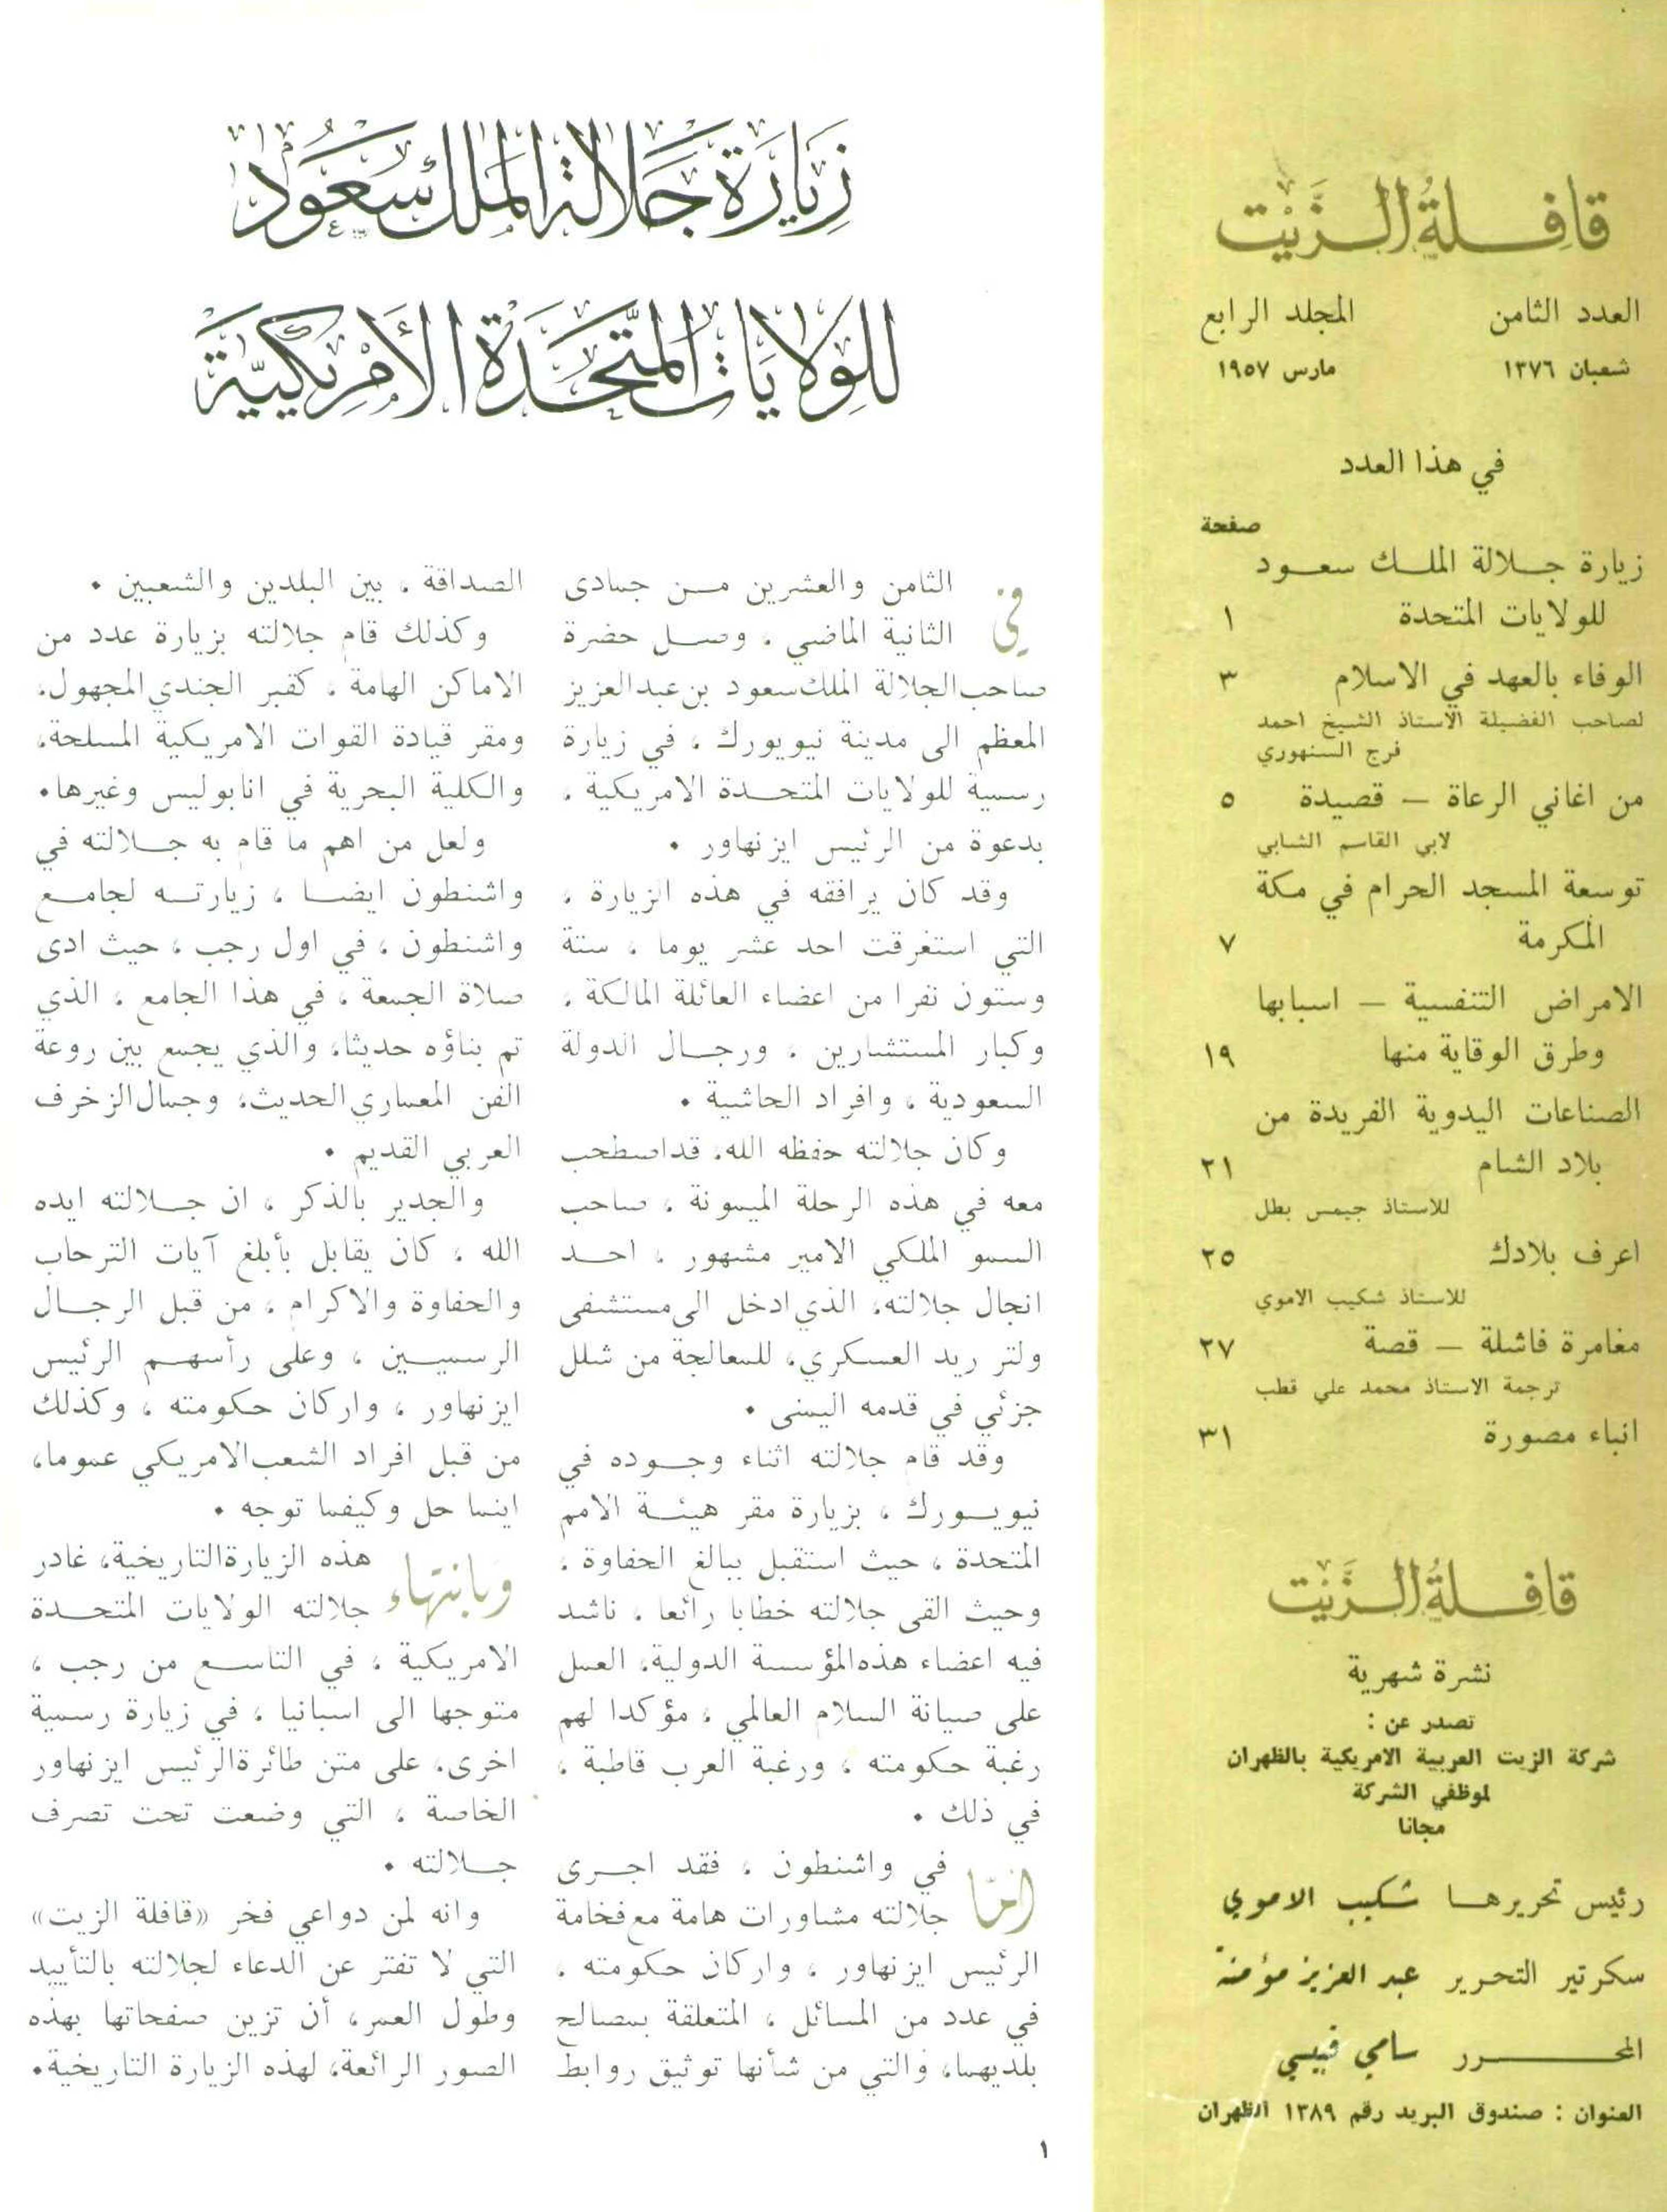 قافلة الزيت
العدد الثامن المجلد الرابع
شعبان ١٣٧٦ مارس ١٩٥٧
في هذا العدد
صفحة
زيارة جلالة الملك سعود
للولايات المتحدة ١
الوفاء بالعهد في الاسلام ٣
لصاحب الفضيلة الاستاذ الشيخ احمد
فرج السنهوري
من اغاني الرعاة — قصيدة ٥
لابي القاسم الشابي
توسعة المسجد الحرام في مكة
المكرمة ٧
الامراض التنفسية — اسبابها
وطرق الوقاية منها ١٩
الصناعات اليدوية الفريدة من
بلاد الشام ٢١
للاستاذ جيمس بطل
اعرف بلادك ٢٥
للاستاذ شكيب الاموي
مغامرة فاشلة — قصة ٢٧
ترجمة الاستاذ محمد علي قطب
انباء مصورة ٣١
قافلة الزيت
نشرة شهرية
تصدر عن :
شركة الزيت العربية الامريكية بالظهران
لموظفي الشركة
مجانا
رئيس تحريرها شكيب الاموي
سكرتير التحرير عبد العزيز مؤمنة
المحرر سامي قبيسي
العنوان : صندوق البريد رقم ١٣٨٩ الظهران
زيارة جلالة الملك سعود
للولايات المتحدة الأمريكية
في الثامن والعشرين من جمادى
الثانية الماضي ، وصل حضرة
صاحب الجلالة الملك سعود بن عبد العزيز
المعظم الى مدينة نيويورك ، في زيارة
رسمية للولايات المتحدة الامريكية ،
بدعوة من الرئيس ايزنهاور .
وقد كان يرافقه في هذه الزيارة ،
التي استغرقت احد عشر يوما ، ستة
وستون نفرا من اعضاء العائلة المالكة ،
وكبار المستشارين ، ورجال الدولة
السعودية ، وافراد الحاشية .
وكان جلالته حفظه الله، قد اصطحب
معه في هذه الرحلة الميمونة ، صاحب
السمو الملكي الامير مشهور ، احد
انجال جلالته، الذي ادخل الى مستشفى
ولتر ريد العسكري، للمعالجة من شلل
جزئي في قدمه اليمنى .
وقد قام جلالته اثناء وجوده في
نيويورك ، بزيارة مقر هيئة الامم
المتحدة ، حيث استقبل ببالغ الحفاوة ،
وحيث القى جلالته خطابا رائعا ، ناشد
فيه اعضاء هذه المؤسسة الدولية، العمل
على صيانة السلام العالمي ، مؤكدا لهم
رغبة حكومته ، ورغبة العرب قاطبة ،
في ذلك .
أمّا في واشنطون ، فقد اجرى
جلالته مشاورات هامة مع فخامة
الرئيس ايزنهاور ، واركان حكومته ،
في عدد من المسائل ، المتعلقة بمصالح
بلديهما، والتي من شأنها توثيق روابط
الصداقة ، بين البلدين والشعبين .
وكذلك قام جلالته بزيارة عدد من
الاماكن الهامة ، كقبر الجندي المجهول،
ومقر قيادة القوات الامريكية المسلحة،
والكلية البحرية في انابوليس وغيرها.
ولعل من اهم ما قام به جلالته في
واشنطون ايضا ، زيارته لجامع
واشنطون ، في اول رجب ، حيث ادى
صلاة الجمعة ، في هذا الجامع ، الذي
تم بناؤه حديثا، والذي يجمع بين روعة
الفن المعماري الحديث، وجمال الزخرف
العربي القديم .
والجدير بالذكر ، ان جلالته ايده
الله ، كان يقابل بأبلغ آيات الترحاب
والحفاوة والاكرام ، من قبل الرجال
الرسميين ، وعلى رأسهم الرئيس
ايزنهاور ، واركان حكومته ، وكذلك
من قبل افراد الشعب الامريكي عموما،
اينما حل وكيفما توجه .
وبانتهاء هذه الزيارة التاريخية، غادر
جلالته الولايات المتحدة
الامريكية ، في التاسع من رجب ،
متوجها الى اسبانيا ، في زيارة رسمية
اخرى، على متن طائرة الرئيس ايزنهاور
الخاصة ، التي وضعت تحت تصرف
جلالته .
وانه لمن دواعي فخر «قافلة الزيت»
التي لا تفتر عن الدعاء لجلالته بالتأييد
وطول العمر، أن تزين صفحاتها بهذه
الصور الرائعة، لهذه الزيارة التاريخية.
١